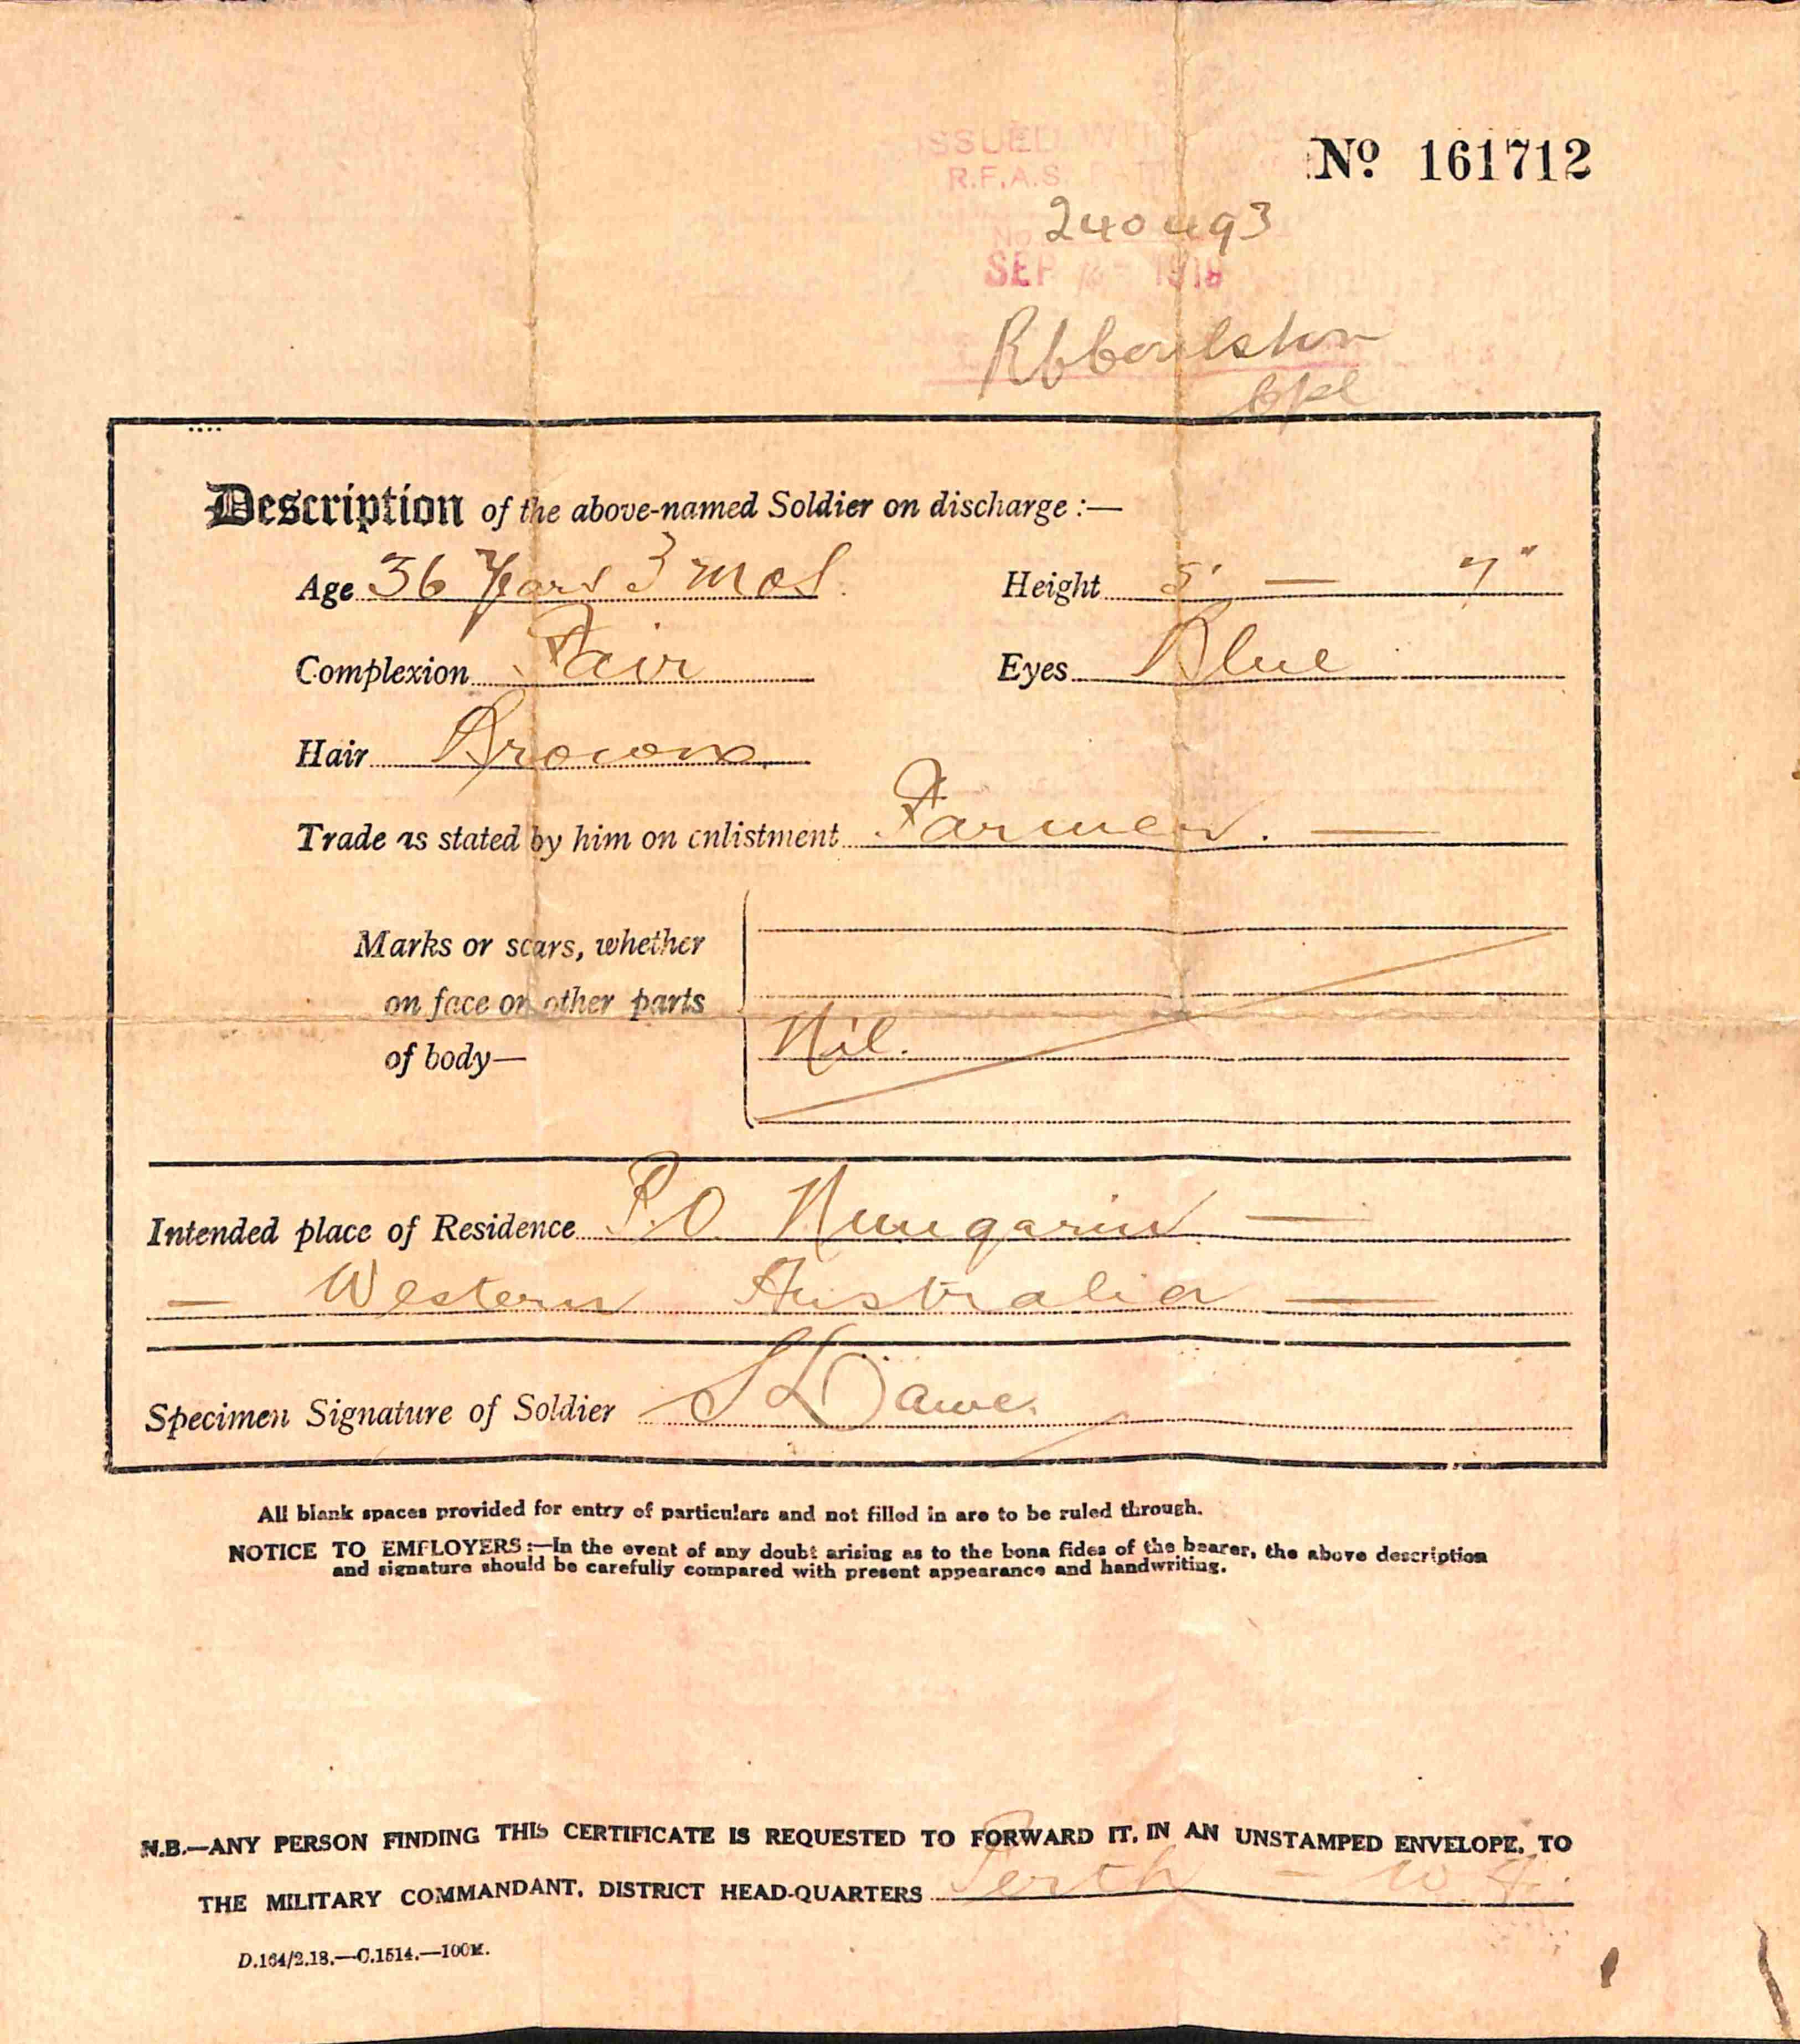 ISSUED WITH
Nº 161712
R.F.A.S.
240493
No
SEP 1918
Cpl
Description of the above-named Soldier on discharge :—
Age 36 Years 3 mos. Height 5' — 7"
Complexion Fair Eyes Blue
Hair Brown
Trade as stated by him on enlistment Farmer. —
Marks or scars, whether
on face or other parts
Nil.
of body—
Intended place of Residence P.O. Nungarin —
— Western Australia —
Specimen Signature of Soldier S L Dawe.
All blank spaces provided for entry of particulars and not filled in are to be ruled through.
NOTICE TO EMPLOYERS:—In the event of any doubt arising as to the bona fides of the bearer, the above description
and signature should be carefully compared with present appearance and handwriting.
N.B.—ANY PERSON FINDING THIS CERTIFICATE IS REQUESTED TO FORWARD IT, IN AN UNSTAMPED ENVELOPE, TO
THE MILITARY COMMANDANT, DISTRICT HEAD-QUARTERS Perth — W.A.
D.164/2.18.—C.1514.—100M.